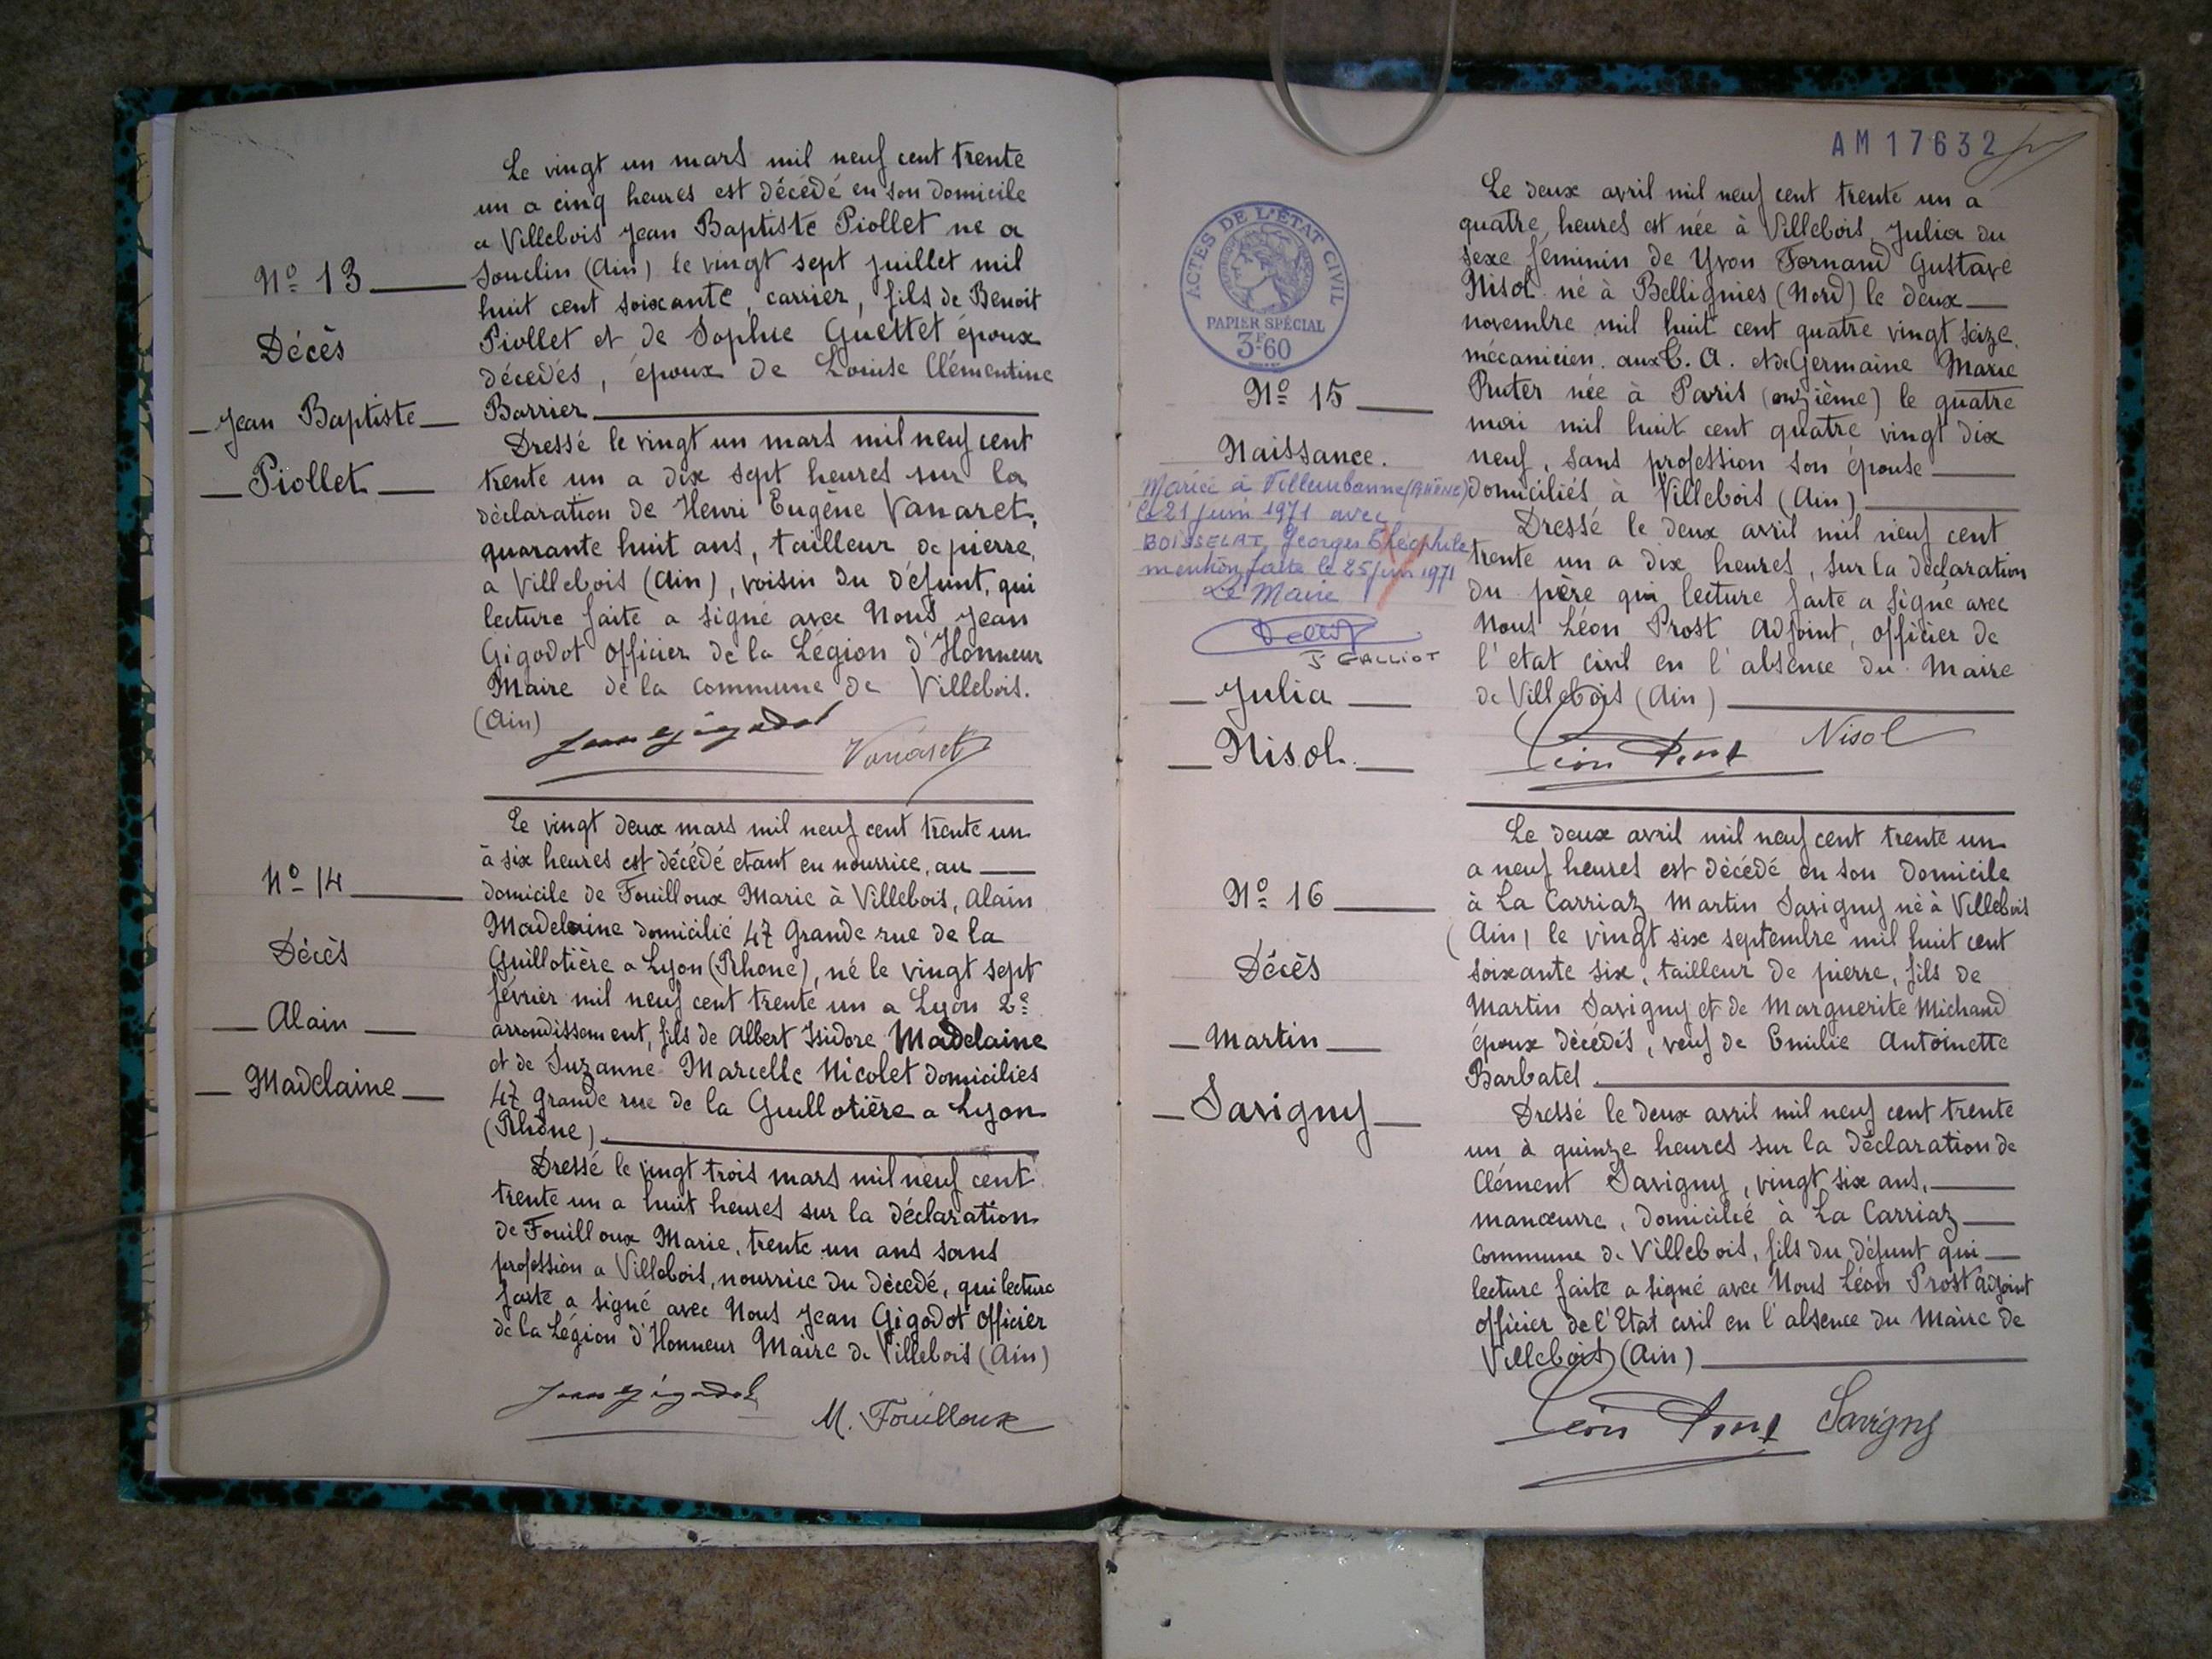 Le vingt un mars mil neuf cent trente
un a cinq heures est décédé en son domicile
a Villebois Jean Baptiste Piollet ne a
Souclin (Ain) le vingt sept juillet mil
huit cent soixante, carrier, fils de Benoit
Piollet et de Sophie Guettet époux
décédés, époux de Louise Clémentine
Barrier
Nº 13
Décès
Jean Baptiste
Piollet
Dressé le vingt un mars mil neuf cent
trente un a dix sept heures sur la
déclaration de Henri Eugène Vanaret,
quarante huit ans, tailleur de pierre,
a Villebois (Ain), voisin du défunt, qui
lecture faite a signé avec Nous Jean
Gigodot Officier de la Légion d'Honneur
Maire de la Commune de Villebois.
(Ain)
Jean Gigodot
Vanaret
Le vingt deux mars mil neuf cent trente un
à six heures est décédé etant en nourrice, au
domicile de Fouilloux Marie à Villebois, Alain
Madelaine domicilié 47 Grande rue de la
Guillotière a Lyon (Rhone), né le vingt sept
février mil neuf cent trente un a Lyon 2e
arrondissement, fils de Albert Isidore Madelaine
et de Suzanne Marcelle Nicolet domiciliés
47 grande rue de la Guillotière a Lyon
(Rhône)
Nº 14
Décès
Alain
Madelaine
Dressé le vingt trois mars mil neuf cent
trente un a huit heures sur la déclaration
de Fouilloux Marie, trente un ans sans
profession a Villebois, nourrice du décedé, qui lecture
faite a signé avec Nous Jean Gigodot Officier
de la Légion d'Honneur Maire de Villebois (Ain)
Jean Gigodot
M. Fouilloux
AM 17632
ACTES DE L'ÉTAT CIVIL
PAPIER SPÉCIAL
3F60
Nº 15
Naissance.
Mariée à Villeurbanne (RHÔNE)
le 21 juin 1971 avec
BOISSELAT Georges Théophile
mention faite le 25 juin 1971
Le Maire
J GALLIOT
Julia
Nisol
Le deux avril mil neuf cent trente un a
quatre heures est née à Villebois Julia du
sexe féminin de Yvon Fornand Gustave
Nisol né à Bellignies (Nord) le deux
novembre mil huit cent quatre vingt seize.
mécanicien aux C. A. et de Germaine Marie
Ruter née à Paris (onzième) le quatre
mai mil huit cent quatre vingt dix
neuf, sans profession son épouse
domiciliés à Villebois (Ain)
Dressé le deux avril mil neuf cent
trente un a dix heures, sur la déclaration
du père qui lecture faite a signé avec
Nous Léon Prost Adjoint, officier de
l'etat civil en l'absence du Maire
de Villebois (Ain)
Léon Prost
Nisol
Le deux avril mil neuf cent trente un
a neuf heures est décédé en son domicile
à La Carriaz Martin Savigny né à Villebois
(Ain) le vingt six septembre mil huit cent
soixante six, tailleur de pierre, fils de
Martin Savigny et de Marguerite Michaud
époux décédés, veuf de Emilie Antoinette
Barbatel
Nº 16
Décès
Martin
Savigny
Dressé le deux avril mil neuf cent trente
un à quinze heures sur la déclaration de
Clément Savigny, vingt six ans,
manœuvre, domicilié à La Carriaz
commune de Villebois, fils du défunt qui
lecture faite a signé avec Nous Léon Prost Adjoint
officier de l'Etat civil en l'absence du Maire de
Villebois (Ain)
Léon Prost
Savigny